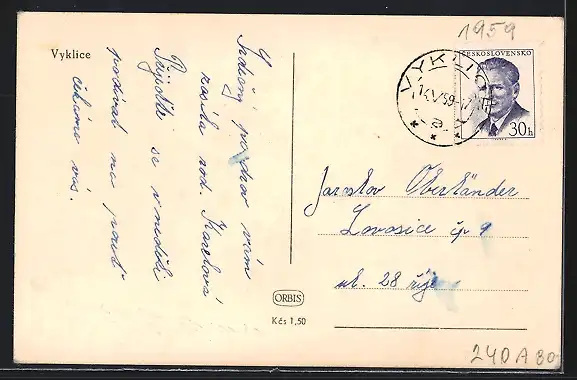 1959
Vyklice
ČESKOSLOVENSKO
30h
VYKLICE
14.V.59-17
a
Srdečný pozdrav vám
zasílá rod. Karelová
Přijďte se v neděli
podívat na pouť
čekáme vás.
Jaroslav Oberländer
Lovosice čp 9
ul. 28 říj
ORBIS
Kčs 1,50
240A80